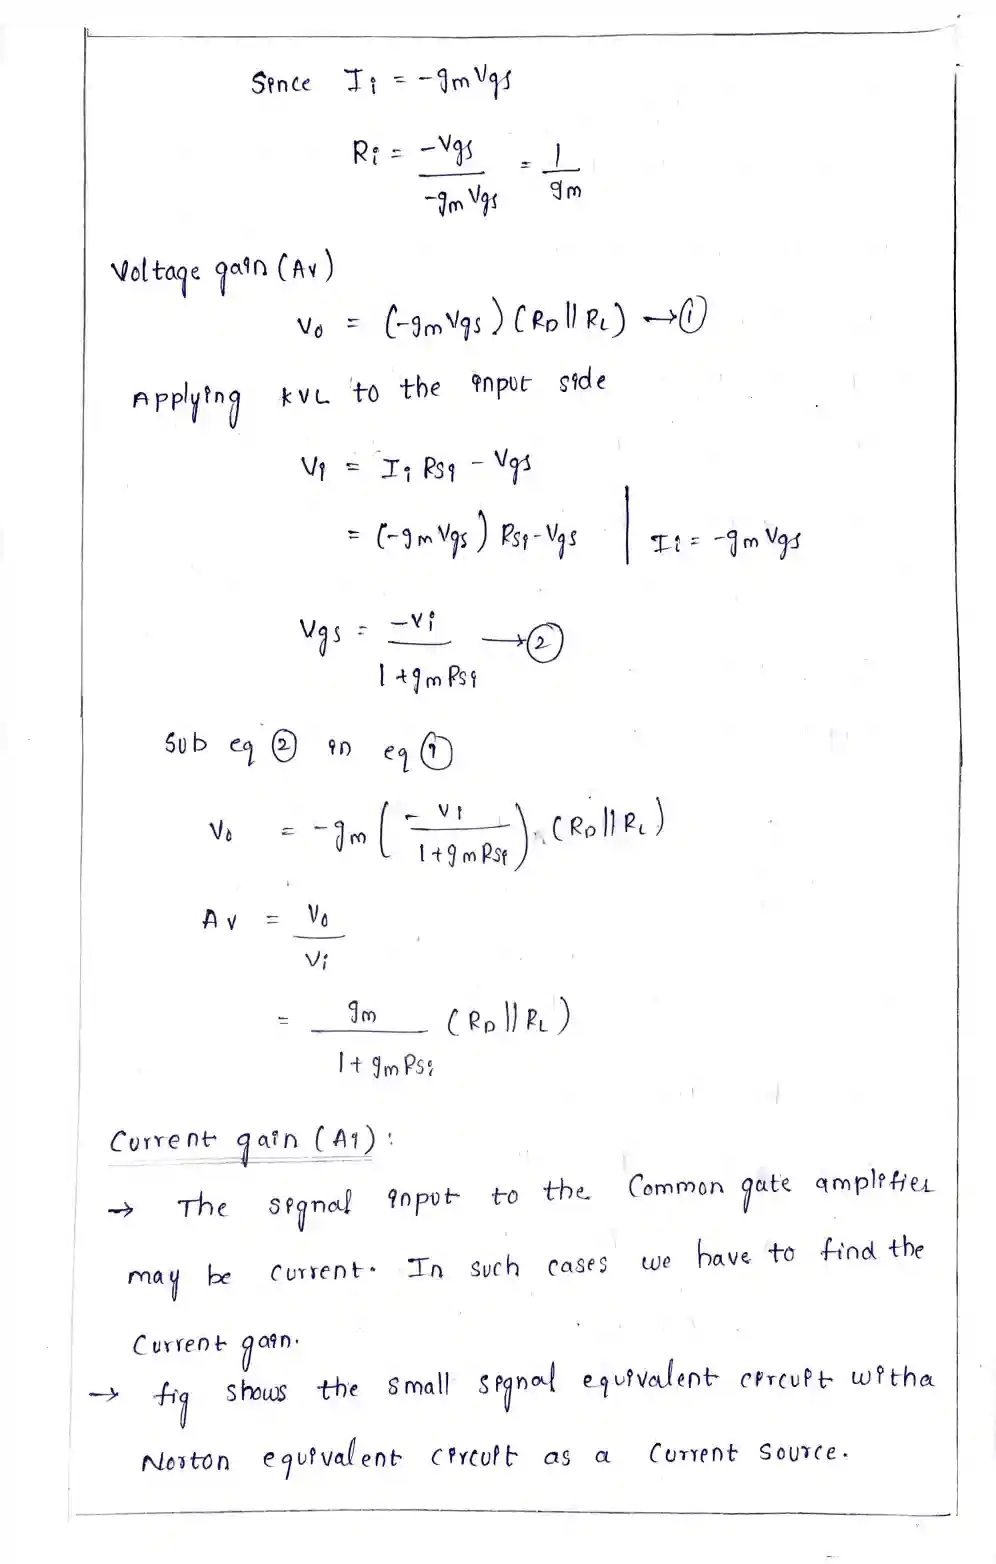 Since Ii = -gmVgs
Ri = -Vgs / -gmVgs = 1 / gm
Voltage gain (Av)
Vo = (-gmVgs) (RD || RL) → ①
Applying KVL to the input side
Vi = Ii Rsi - Vgs
= (-gmVgs) Rsi - Vgs | Ii = -gmVgs
Vgs = -Vi / 1+gmRsi → ②
Sub eq ② in eq ①
Vo = -gm ( - Vi / 1+gmRsi ). (RD || RL)
Av = Vo / Vi
= gm / 1+gmRsi (RD || RL)
Current gain (Ai) :
→ The signal input to the Common gate amplifier
may be current. In such cases we have to find the
Current gain.
→ fig shows the small signal equivalent circuit with a
Norton equivalent circuit as a Current Source.